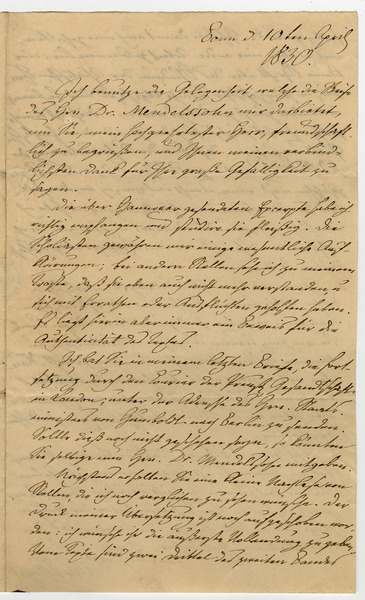 Bonn d. 10ten April
1830.
Ich benutze die Gelegenheit, welche die Reise
des Hrn. Dr. Mendelssohn mir darbietet,
um Sie, mein hochgeehrtester Herr, freundschaft-
lich zu begrüßen, und Ihnen meinen verbind-
lichsten Dank für Ihre große Gefälligkeit zu
sagen.
Die über Hannover gesendeten Excerpte habe ich
richtig empfangen und studire sie fleißig. Die
Scholiasten gewähren mir einige wesentliche Auf-
klärungen: bei andern Stellen sehe ich zu meinem
Troste, daß sie eben auch nicht mehr verstanden u
sich mit Errathen oder Ausflüchten geholfen haben.
Es liegt hierin aber immer ein Beweis für die
Authenticität des Textes.
Ich bat Sie in meinem letzten Briefe, die Fort-
setzung durch den Courier der Preuß. Gesandtschaft
in London, unter der Adresse des Hrn. Staats-
ministers von Humboldt nach Berlin zu senden.
Sollte dieß noch nicht geschehen seyn, so könnten
Sie selbige nun Hrn. Dr. Mendelssohn mitgeben.
Nächstens erhalten Sie eine kleine Nachlese von
Stellen, die ich noch verglichen zu sehen wünsche. Der
Druck meiner Übersetzung ist noch aufgeschoben wor-
den: ich wünsche ihr die äußerste Vollendung zu geben.
Vom Texte sind zwei Drittel des zweiten Bandes